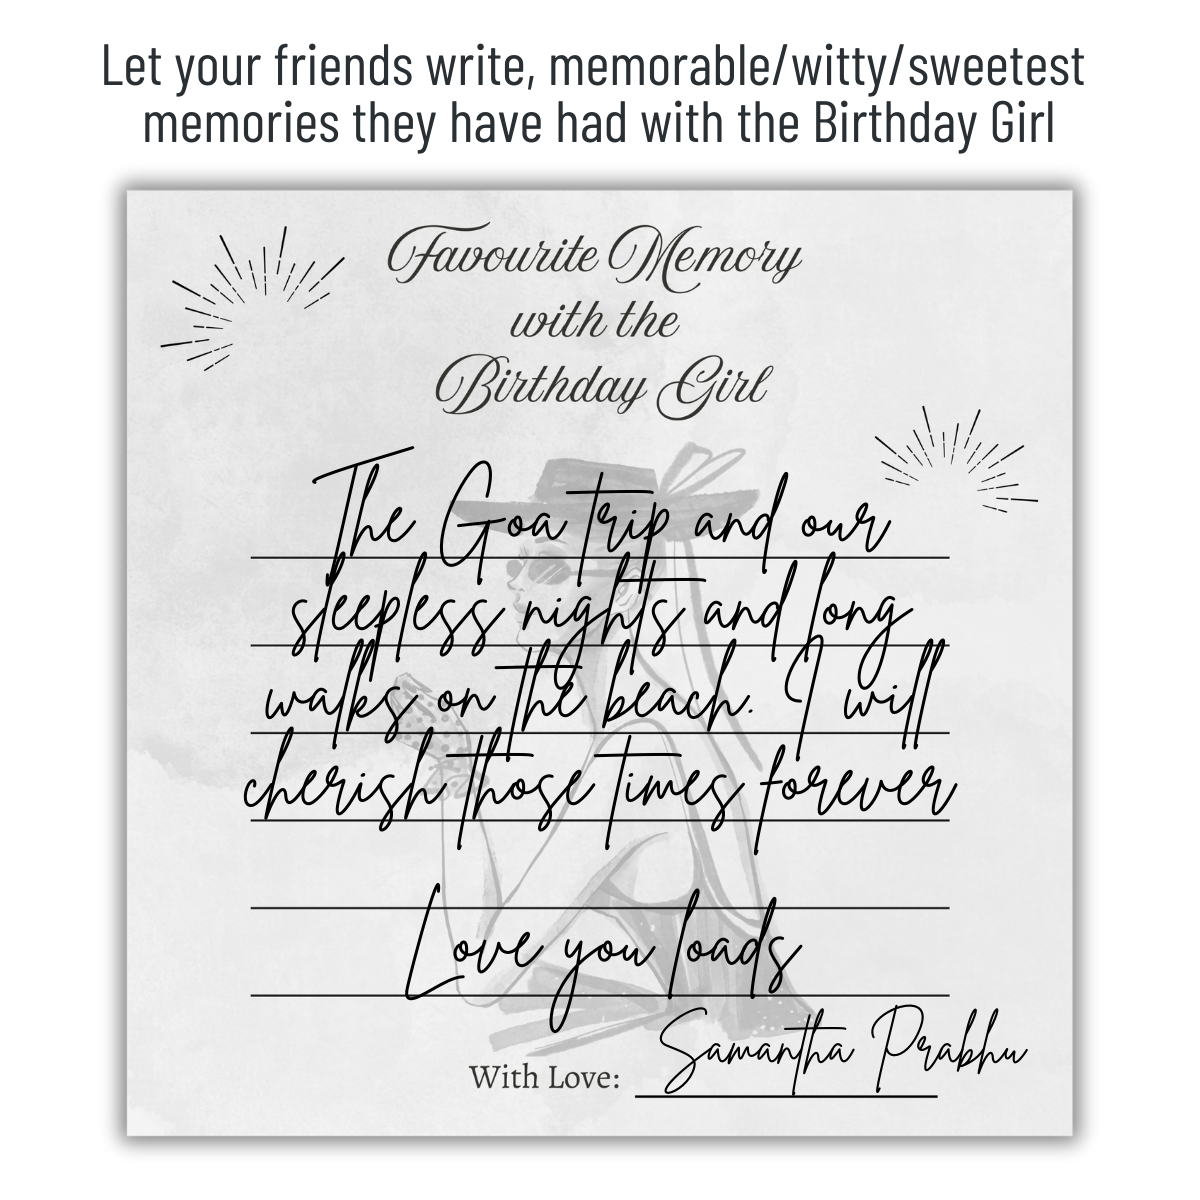 Let your friends write, memorable/witty/sweetest
memories they have had with the Birthday Girl
Favourite Memory
with the
Birthday Girl
The Goa trip and our
sleepless nights and long
walks on the beach. I will
cherish those times forever
Love you loads
With Love: Samantha Prabhu